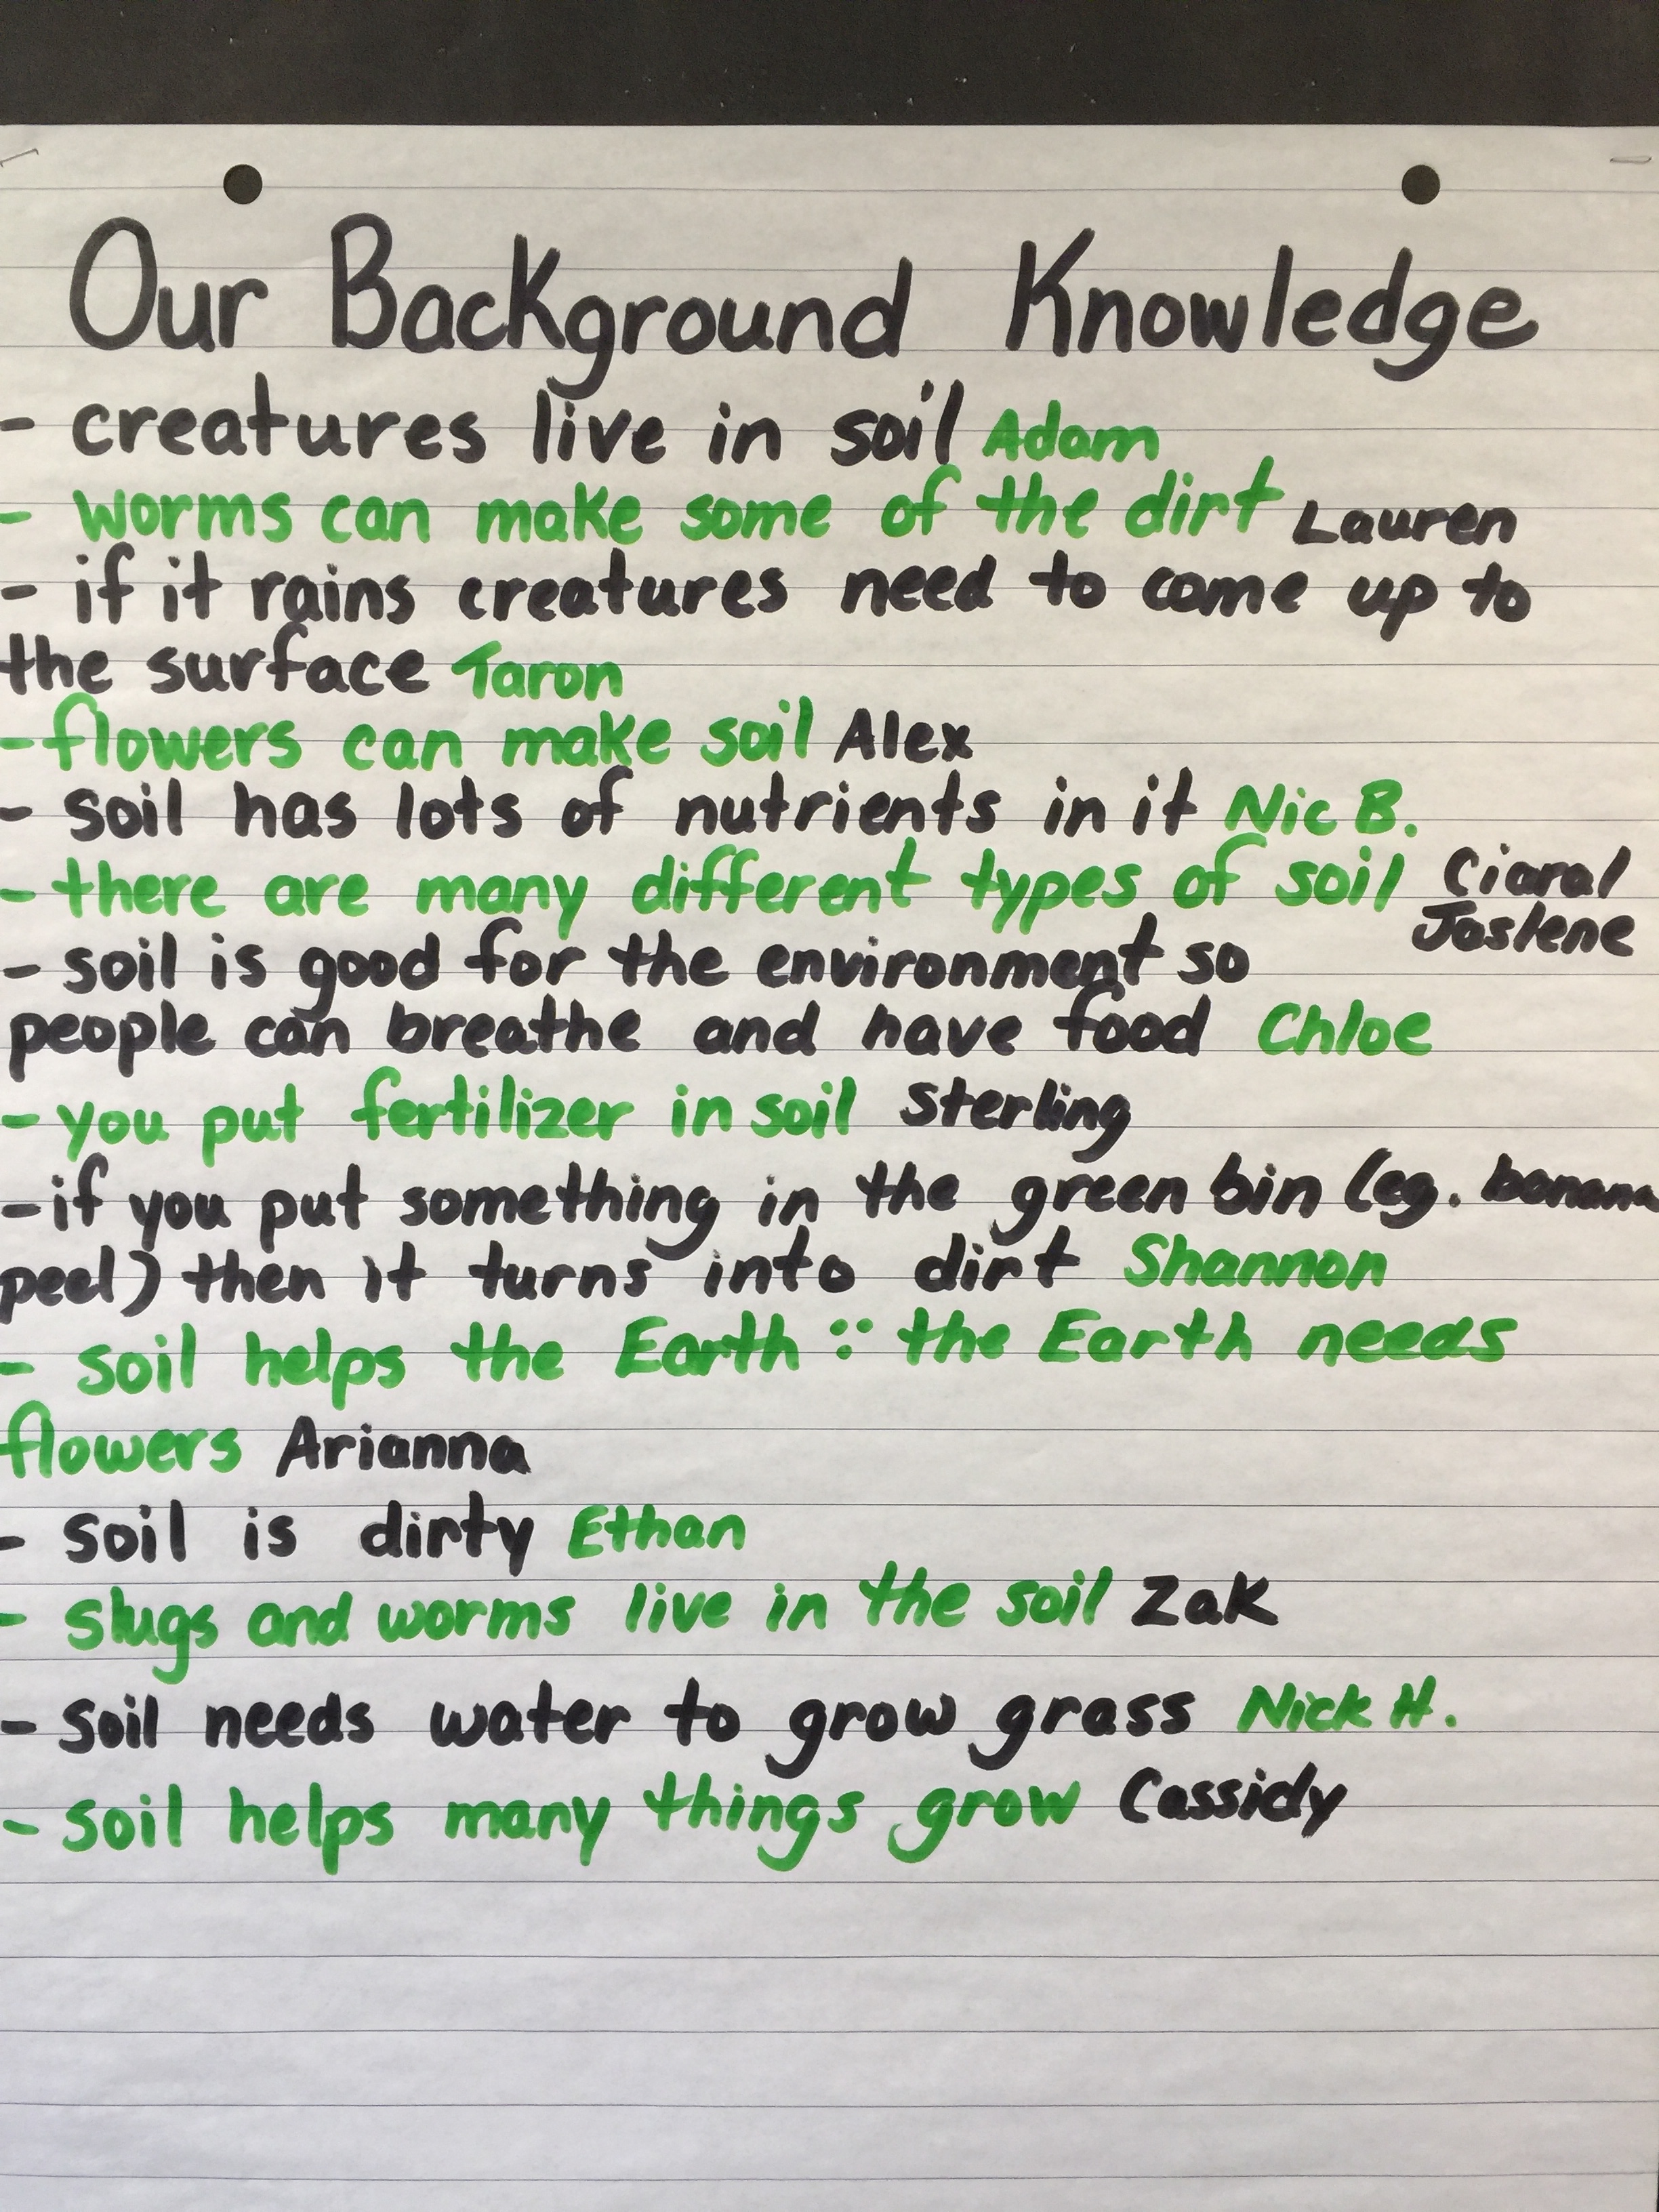 Our Background Knowledge
- creatures live in soil Adam
- worms can make some of the dirt Lauren
- if it rains creatures need to come up to
the surface Taron
- flowers can make soil Alex
- soil has lots of nutrients in it Nic B.
- there are many different types of soil Ciara/
Joslene
- soil is good for the environment so
people can breathe and have food Chloe
- you put fertilizer in soil Sterling
- if you put something in the green bin (eg. banana
peel) then it turns into dirt Shannon
- soil helps the Earth :: the Earth needs
flowers Arianna
- soil is dirty Ethan
- slugs and worms live in the soil Zak
- soil needs water to grow grass Nick H.
- soil helps many things grow Cassidy